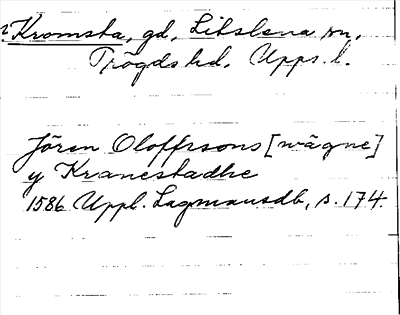 ? Kromsta, gd, Litslena sn,
Trögds hd. Upps. l.
Jören Oloffrsons [wägne]
y Kranestadhe
1586 Uppl. Lagmansdb, s. 174.